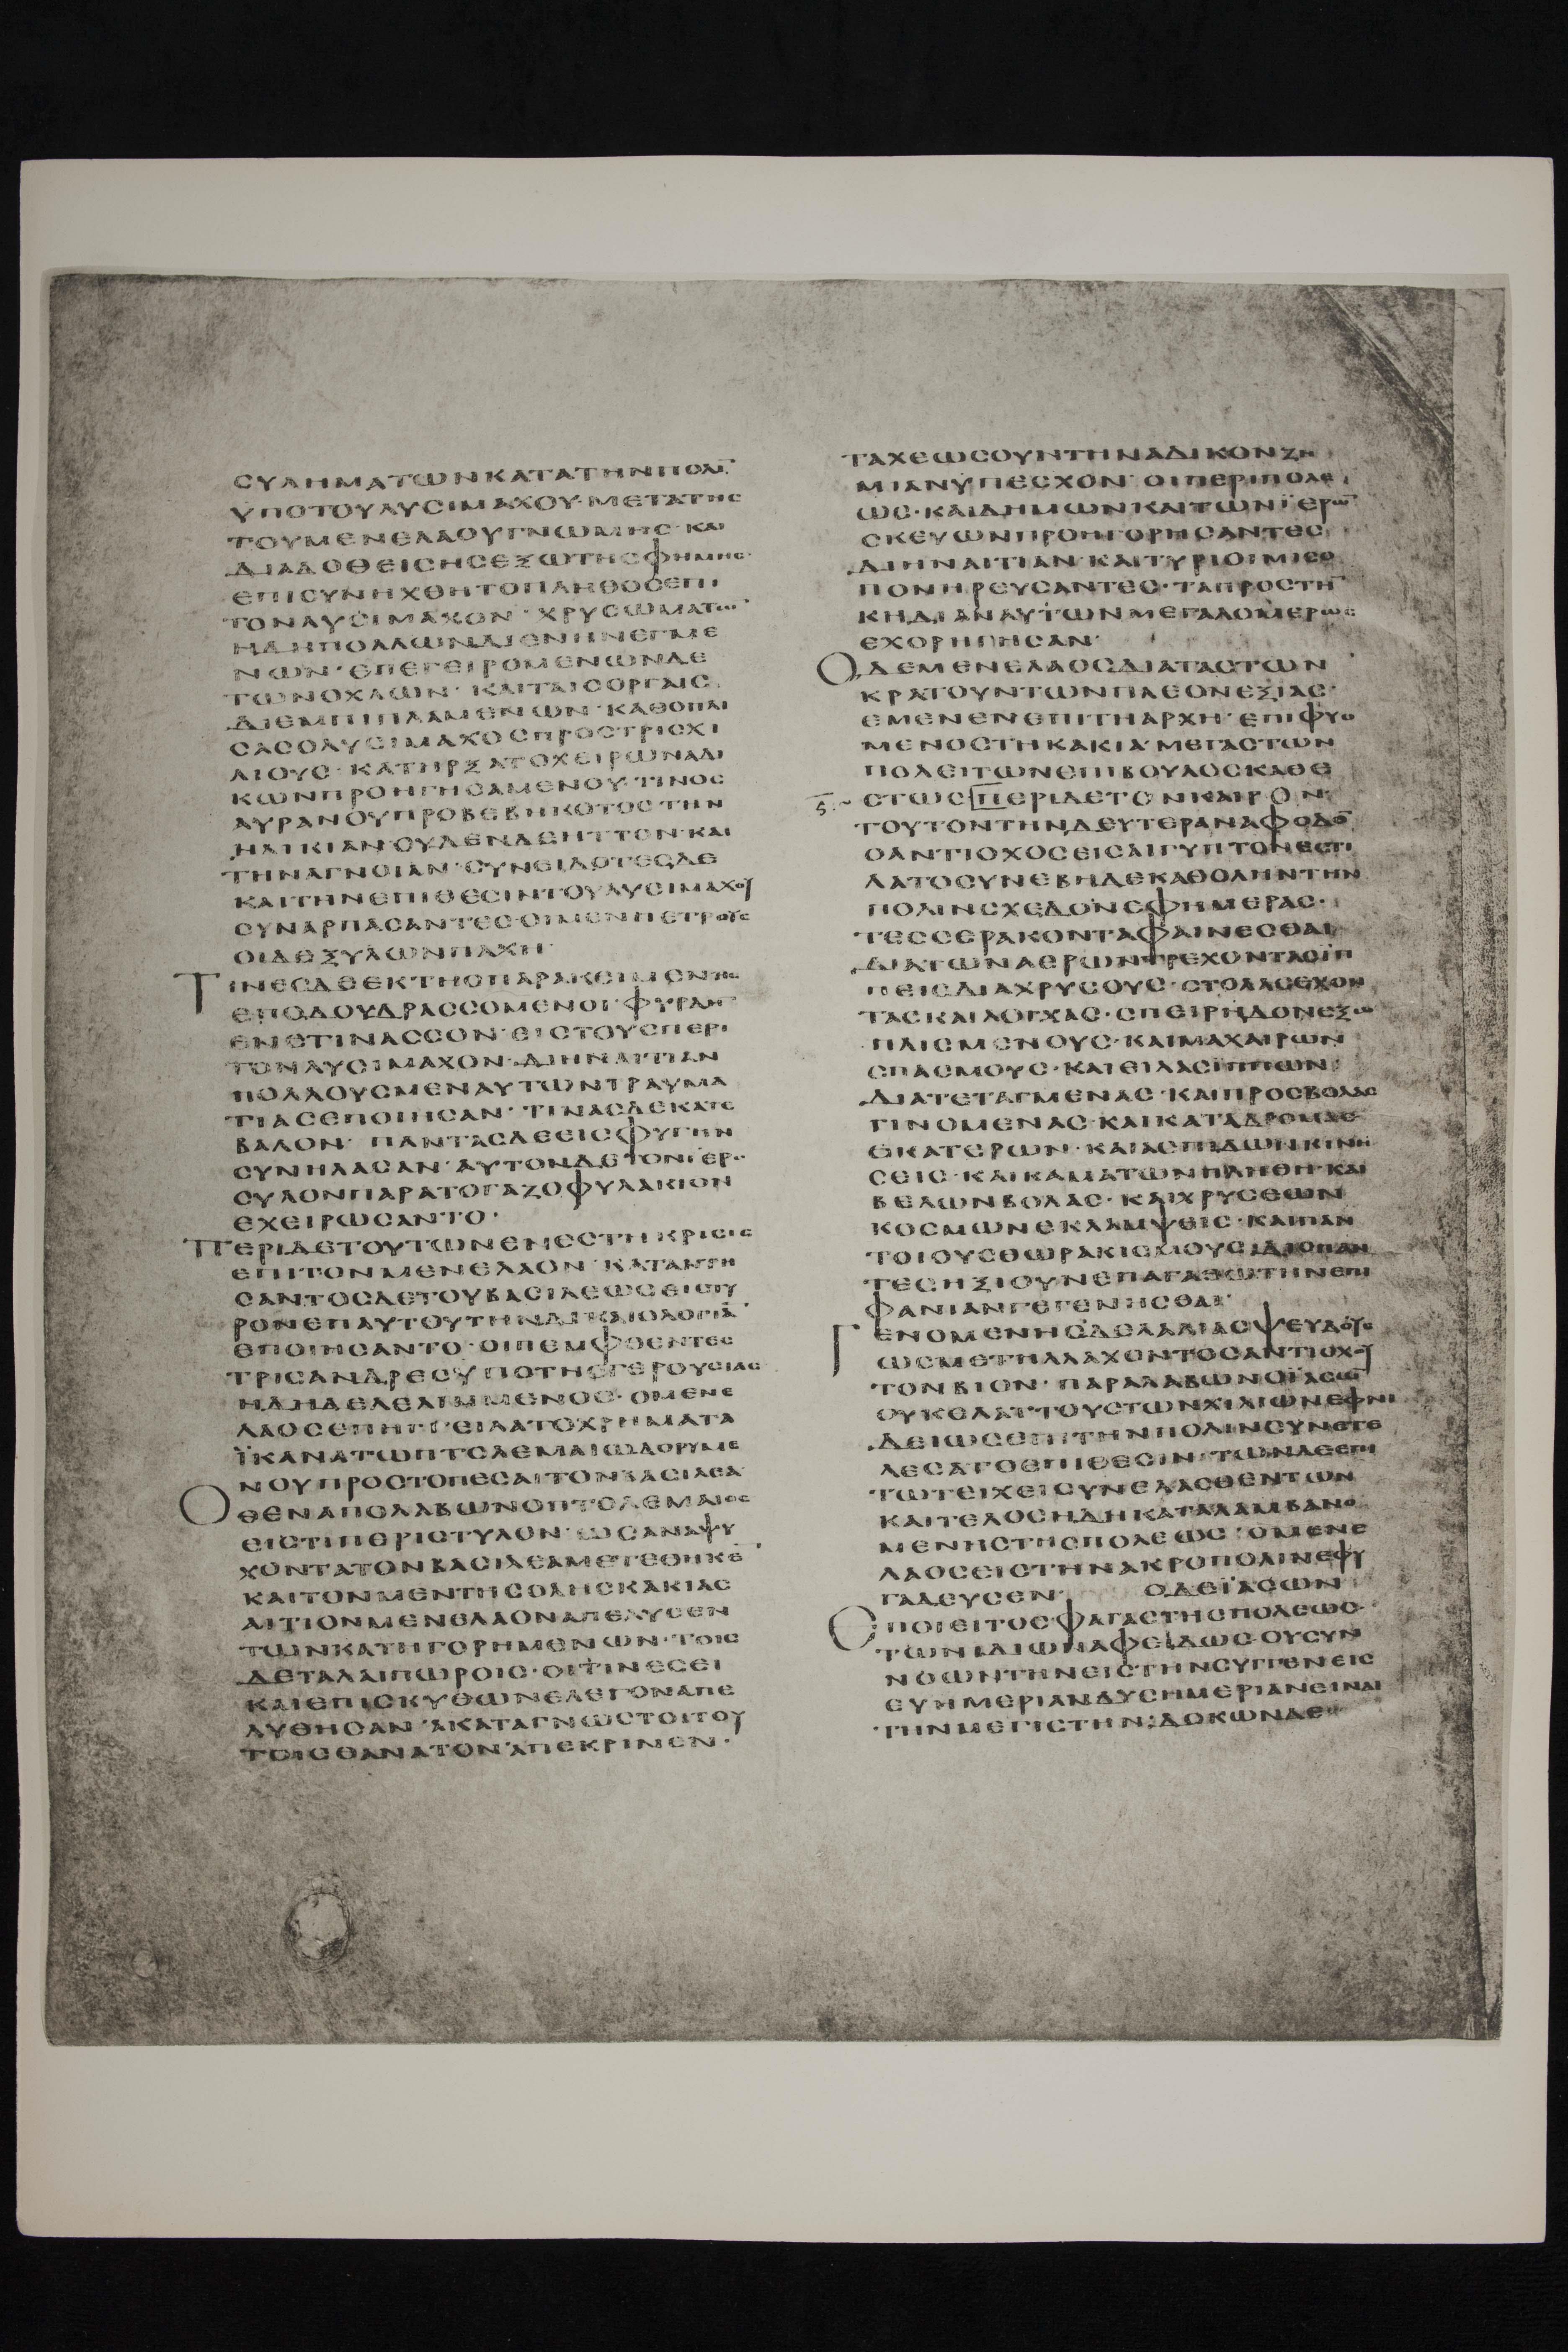 ϹΥΛΗΜΑΤΩΝΚΑΤΑΤΗΝΠΟΛΙ̅
ΥΠΟΤΟΥΛΥϹΙΜΑΧΟΥ·ΜΕΤΑΤΗϹ
ΤΟΥΜΕΝΕΛΑΟΥΓΝΩΜΗϹ·ΚΑΙ
ΔΙΑΔΟΘΕΙϹΗϹΕΞΩΤΗϹΦΗΜΗϹ·
ΕΠΙϹΥΝΗΧΘΗΤΟΠΛΗΘΟϹΕΠΙ
ΤΟΝΛΥϹΙΜΑΧΟΝ·ΧΡΥϹΩΜΑΤΩ̅
ΗΔΗΠΟΛΛΩΝΔΙΕΝΗΝΕΓΜΕ
ΝΩΝ·ΕΠΕΓΕΙΡΟΜΕΝΩΝΔΕ
ΤΩΝΟΧΛΩΝ·ΚΑΙΤΑΙϹΟΡΓΑΙϹ
ΔΙΕΜΠΙΠΛΑΜΕΝΩΝ·ΚΑΘΟΠΛΙ
ϹΑϹΟΛΥϹΙΜΑΧΟϹΠΡΟϹΤΡΙϹΧΙ
ΛΙΟΥϹ·ΚΑΤΗΡΞΑΤΟΧΕΙΡΩΝΑΔΙ
ΚΩΝΠΡΟΗΓΗϹΑΜΕΝΟΥ·ΤΙΝΟϹ
ΑΥΡΑΝΟΥΠΡΟΒΕΒΗΚΟΤΟϹΤΗΝ
ΗΛΙΚΙΑΝΟΥΔΕΝΔΕΗΤΤΟΝ·ΚΑΙ
ΤΗΝΑΓΝΟΙΑΝ·ϹΥΝΕΙΔΟΤΕϹΔΕ
ΚΑΙΤΗΝΕΠΙΘΕϹΙΝΤΟΥΛΥϹΙΜΑΧΟΥ
ϹΥΝΑΡΠΑϹΑΝΤΕϹ·ΟΙΜΕΝΠΕΤΡΟΥϹ
ΟΙΔΕΞΥΛΩΝΠΑΧΗ·
ΤΙΝΕϹΔΕΕΚΤΗϹΠΑΡΑΚΕΙΜΕΝΗϹ
ϹΠΟΔΟΥΔΡΑϹϹΟΜΕΝΟΙ·ΦΥΡΔΗ̅
ΕΝΕΤΙΝΑϹϹΟΝ·ΕΙϹΤΟΥϹΠΕΡΙ
ΤΟΝΛΥϹΙΜΑΧΟΝ·ΔΙΗΝΑΙΤΙΑΝ
ΠΟΛΛΟΥϹΜΕΝΑΥΤΩΝΤΡΑΥΜΑ
ΤΙΑϹΕΠΟΙΗϹΑΝ·ΤΙΝΑϹΔΕΚΑΤΕ
ΒΑΛΟΝ·ΠΑΝΤΑϹΔΕΕΙϹΦΥΓΗΝ
ϹΥΝΗΛΑϹΑΝ·ΑΥΤΟΝΔΕΤΟΝΪΕΡΟ
ϹΥΛΟΝΠΑΡΑΤΟΓΑΖΟΦΥΛΑΚΙΟΝ
ΕΧΕΙΡΩϹΑΝΤΟ·
ΠΕΡΙΔΕΤΟΥΤΩΝΕΝΕϹΤΗΚΡΙϹΙϹ
ΕΠΙΤΟΝΜΕΝΕΛΑΟΝ·ΚΑΤΑΝΤΗ
ϹΑΝΤΟϹΔΕΤΟΥΒΑϹΙΛΕΩϹΕΙϹΤΥ
ΡΟΝΕΠΑΥΤΟΥΤΗΝΔΙΚΑΙΟΛΟΓΙΑ̅
ΕΠΟΙΗϹΑΝΤΟ·ΟΙΠΕΜΦΘΕΝΤΕϹ
ΤΡΙϹΑΝΔΡΕϹΥΠΟΤΗϹΓΕΡΟΥϹΙΑϹ
ΗΔΗΔΕΛΕΛΙΜΜΕΝΟϹ·ΟΜΕΝΕ
ΛΑΟϹΕΠΗΓΓΕΙΛΑΤΟΧΡΗΜΑΤΑ
ΪΚΑΝΑΤΩΠΤΟΛΕΜΑΙΩΔΟΡΥΜΕ
ΝΟΥΠΡΟϹΤΟΠΕϹΑΙΤΟΝΒΑϹΙΛΕΑ
ΟΘΕΝΑΠΟΛΑΒΩΝΟΠΤΟΛΕΜΑΙΟϹ
ΕΙϹΤΙΠΕΡΙϹΤΥΛΟΝ·ΩϹΑΝΑΨΥ
ΧΟΝΤΑΤΟΝΒΑϹΙΛΕΑΜΕΤΕΘΗΚΕ̅
ΚΑΙΤΟΝΜΕΝΤΗϹΟΛΗϹΚΑΚΙΑϹ
ΑΙΤΙΟΝΜΕΝΕΛΑΟΝΑΠΕΛΥϹΕΝ
ΤΩΝΚΑΤΗΓΟΡΗΜΕΝΩΝ·ΤΟΙϹ
ΔΕΤΑΛΑΙΠΩΡΟΙϹ·ΟΙΤΙΝΕϹΕΙ
ΚΑΙΕΠΙϹΚΥΘΩΝΕΛΕΓΟΝΑΠΕ
ΛΥΘΗϹΑΝ·ΑΚΑΤΑΓΝΩϹΤΟΙΤΟΥ
ΤΟΙϹΘΑΝΑΤΟΝΑΠΕΚΡΙΝΕΝ·
ΤΑΧΕΩϹΟΥΝΤΗΝΑΔΙΚΟΝΖΗ
ΜΙΑΝΥΠΕϹΧΟΝ·ΟΙΠΕΡΙΠΟΛΕ
ΩϹ·ΚΑΙΔΗΜΩΝΚΑΙΤΩΝΪΕΡΩ̅
ϹΚΕΥΩΝΠΡΟΗΓΟΡΗϹΑΝΤΕϹ
ΔΙΗΝΑΙΤΙΑΝ·ΚΑΙΤΥΡΙΟΙΜΙϹΟ
ΠΟΝΗΡΕΥϹΑΝΤΕϹ·ΤΑΠΡΟϹΤΗ̅
ΚΗΔΙΑΝΑΥΤΩΝΜΕΓΑΛΟΜΕΡΩϹ
ΕΧΟΡΗΓΗϹΑΝ·
ΟΔΕΜΕΝΕΛΑΟϹΔΙΑΤΑϹΤΩΝ
ΚΡΑΤΟΥΝΤΩΝΠΛΕΟΝΕΞΙΑϹ·
ΕΜΕΝΕΝΕΠΙΤΗΑΡΧΗ·ΕΠΙΦΥΟ
ΜΕΝΟϹΤΗΚΑΚΙΑ·ΜΕΓΑϹΤΩΝ
ΠΟΛΕΙΤΩΝΕΠΙΒΟΥΛΟϹΚΑΘΕ
ϹΤΩϹΠΕΡΙΔΕΤΟΝΚΑΙΡΟΝ
ΤΟΥΤΟΝΤΗΝΔΕΥΤΕΡΑΝΑΦΟΔΟ̅
ΟΑΝΤΙΟΧΟϹΕΙϹΑΙΓΥΠΤΟΝΕϹΤΙ
ΛΑΤΟϹΥΝΕΒΗΔΕΚΑΘΟΛΗΝΤΗΝ
ΠΟΛΙΝϹΧΕΔΟΝΕΦΗΜΕΡΑϹ·
ΤΕϹϹΕΡΑΚΟΝΤΑΦΑΙΝΕϹΘΑΙ
ΔΙΑΤΩΝΑΕΡΩΝΤΡΕΧΟΝΤΑϹΪΠ
ΠΕΙϹΔΙΑΧΡΥϹΟΥϹ·ϹΤΟΛΑϹΕΧΟΝ
ΤΑϹΚΑΙΛΟΓΧΑϹ·ϹΠΕΙΡΗΔΟΝΕΞΩ
ΠΛΙϹΜΕΝΟΥϹ·ΚΑΙΜΑΧΑΙΡΩΝ
ϹΠΑϹΜΟΥϹ·ΚΑΙΕΙΛΑϹΪΠΠΩΝ
ΔΙΑΤΕΤΑΓΜΕΝΑϹ·ΚΑΙΠΡΟϹΒΟΛΑϹ
ΓΙΝΟΜΕΝΑϹ·ΚΑΙΚΑΤΑΔΡΟΜΑϹ
ΕΚΑΤΕΡΩΝ·ΚΑΙΑϹΠΙΔΩΝΚΙΝΗ
ϹΕΙϹ·ΚΑΙΚΑΜΑΤΩΝΠΛΗΘΗ·ΚΑΙ
ΒΕΛΩΝΒΟΛΑϹ·ΚΑΙΧΡΥϹΕΩΝ
ΚΟϹΜΩΝΕΚΛΑΜΨΕΙϹ·ΚΑΙΠΑΝ
ΤΟΙΟΥϹΘΩΡΑΚΙϹΜΟΥϹΔΙΟΠΑΝ
ΤΕϹΗΞΙΟΥΝΕΠΑΓΑΘΩΤΗΝΕΠΙ
ΦΑΝΙΑΝΓΕΓΕΝΗϹΘΑΙ·
ΓΕΝΟΜΕΝΗϹΔΕΛΑΛΙΑϹΨΕΥΔΟΥϹ
ΩϹΜΕΤΗΛΛΑΧΟΝΤΟϹΑΝΤΙΟΧΟΥ
ΤΟΝΒΙΟΝ·ΠΑΡΑΛΑΒΩΝΟΪΑϹΩ̅
ΟΥΚΕΛΑΤΤΟΥϹΤΩΝΧΙΛΙΩΝΕΦΝΙ
ΔΕΙΩϹΕΠΙΤΗΝΠΟΛΙΝϹΥΝΕΤΕ
ΛΕϹΑΤΟΕΠΙΘΕϹΙΝ·ΤΩΝΔΕΕΠΙ
ΤΩΤΕΙΧΕΙϹΥΝΕΛΑϹΘΕΝΤΩΝ
ΚΑΙΤΕΛΟϹΗΔΗΚΑΤΑΛΑΜΒΑΝΟ
ΜΕΝΗϹΤΗϹΠΟΛΕΩϹ·ΟΜΕΝΕ
ΛΑΟϹΕΙϹΤΗΝΑΚΡΟΠΟΛΙΝΕΦΥ
ΓΑΔΕΥϹΕΝ· ΟΔΕΪΑϹΩΝ
ΕΠΟΙΕΙΤΟϹΦΑΓΑϹΤΗϹΠΟΛΕΩϹ
ΤΩΝΙΔΙΩΝΑΦΕΙΔΩϹ·ΟΥϹΥΝ
ΝΟΩΝΤΗΝΕΙϹΤΗΝϹΥΓΓΕΝΕΙϹ
ΕΥΗΜΕΡΙΑΝΔΥϹΗΜΕΡΙΑΝΕΙΝΑΙ
ΤΗΝΜΕΓΙϹΤΗΝ·ΔΟΚΩΝΔΕ